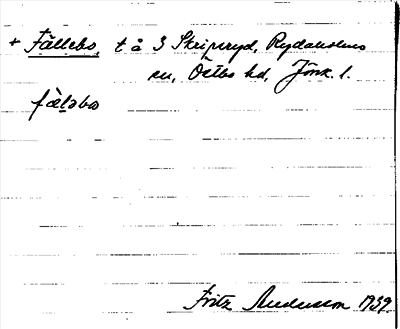 + Fällebo, t å 3 Skripseryd, Rydaholms
sn, Östbo hd, Jönk. l.
fälebo
Fritz Andersson 1939